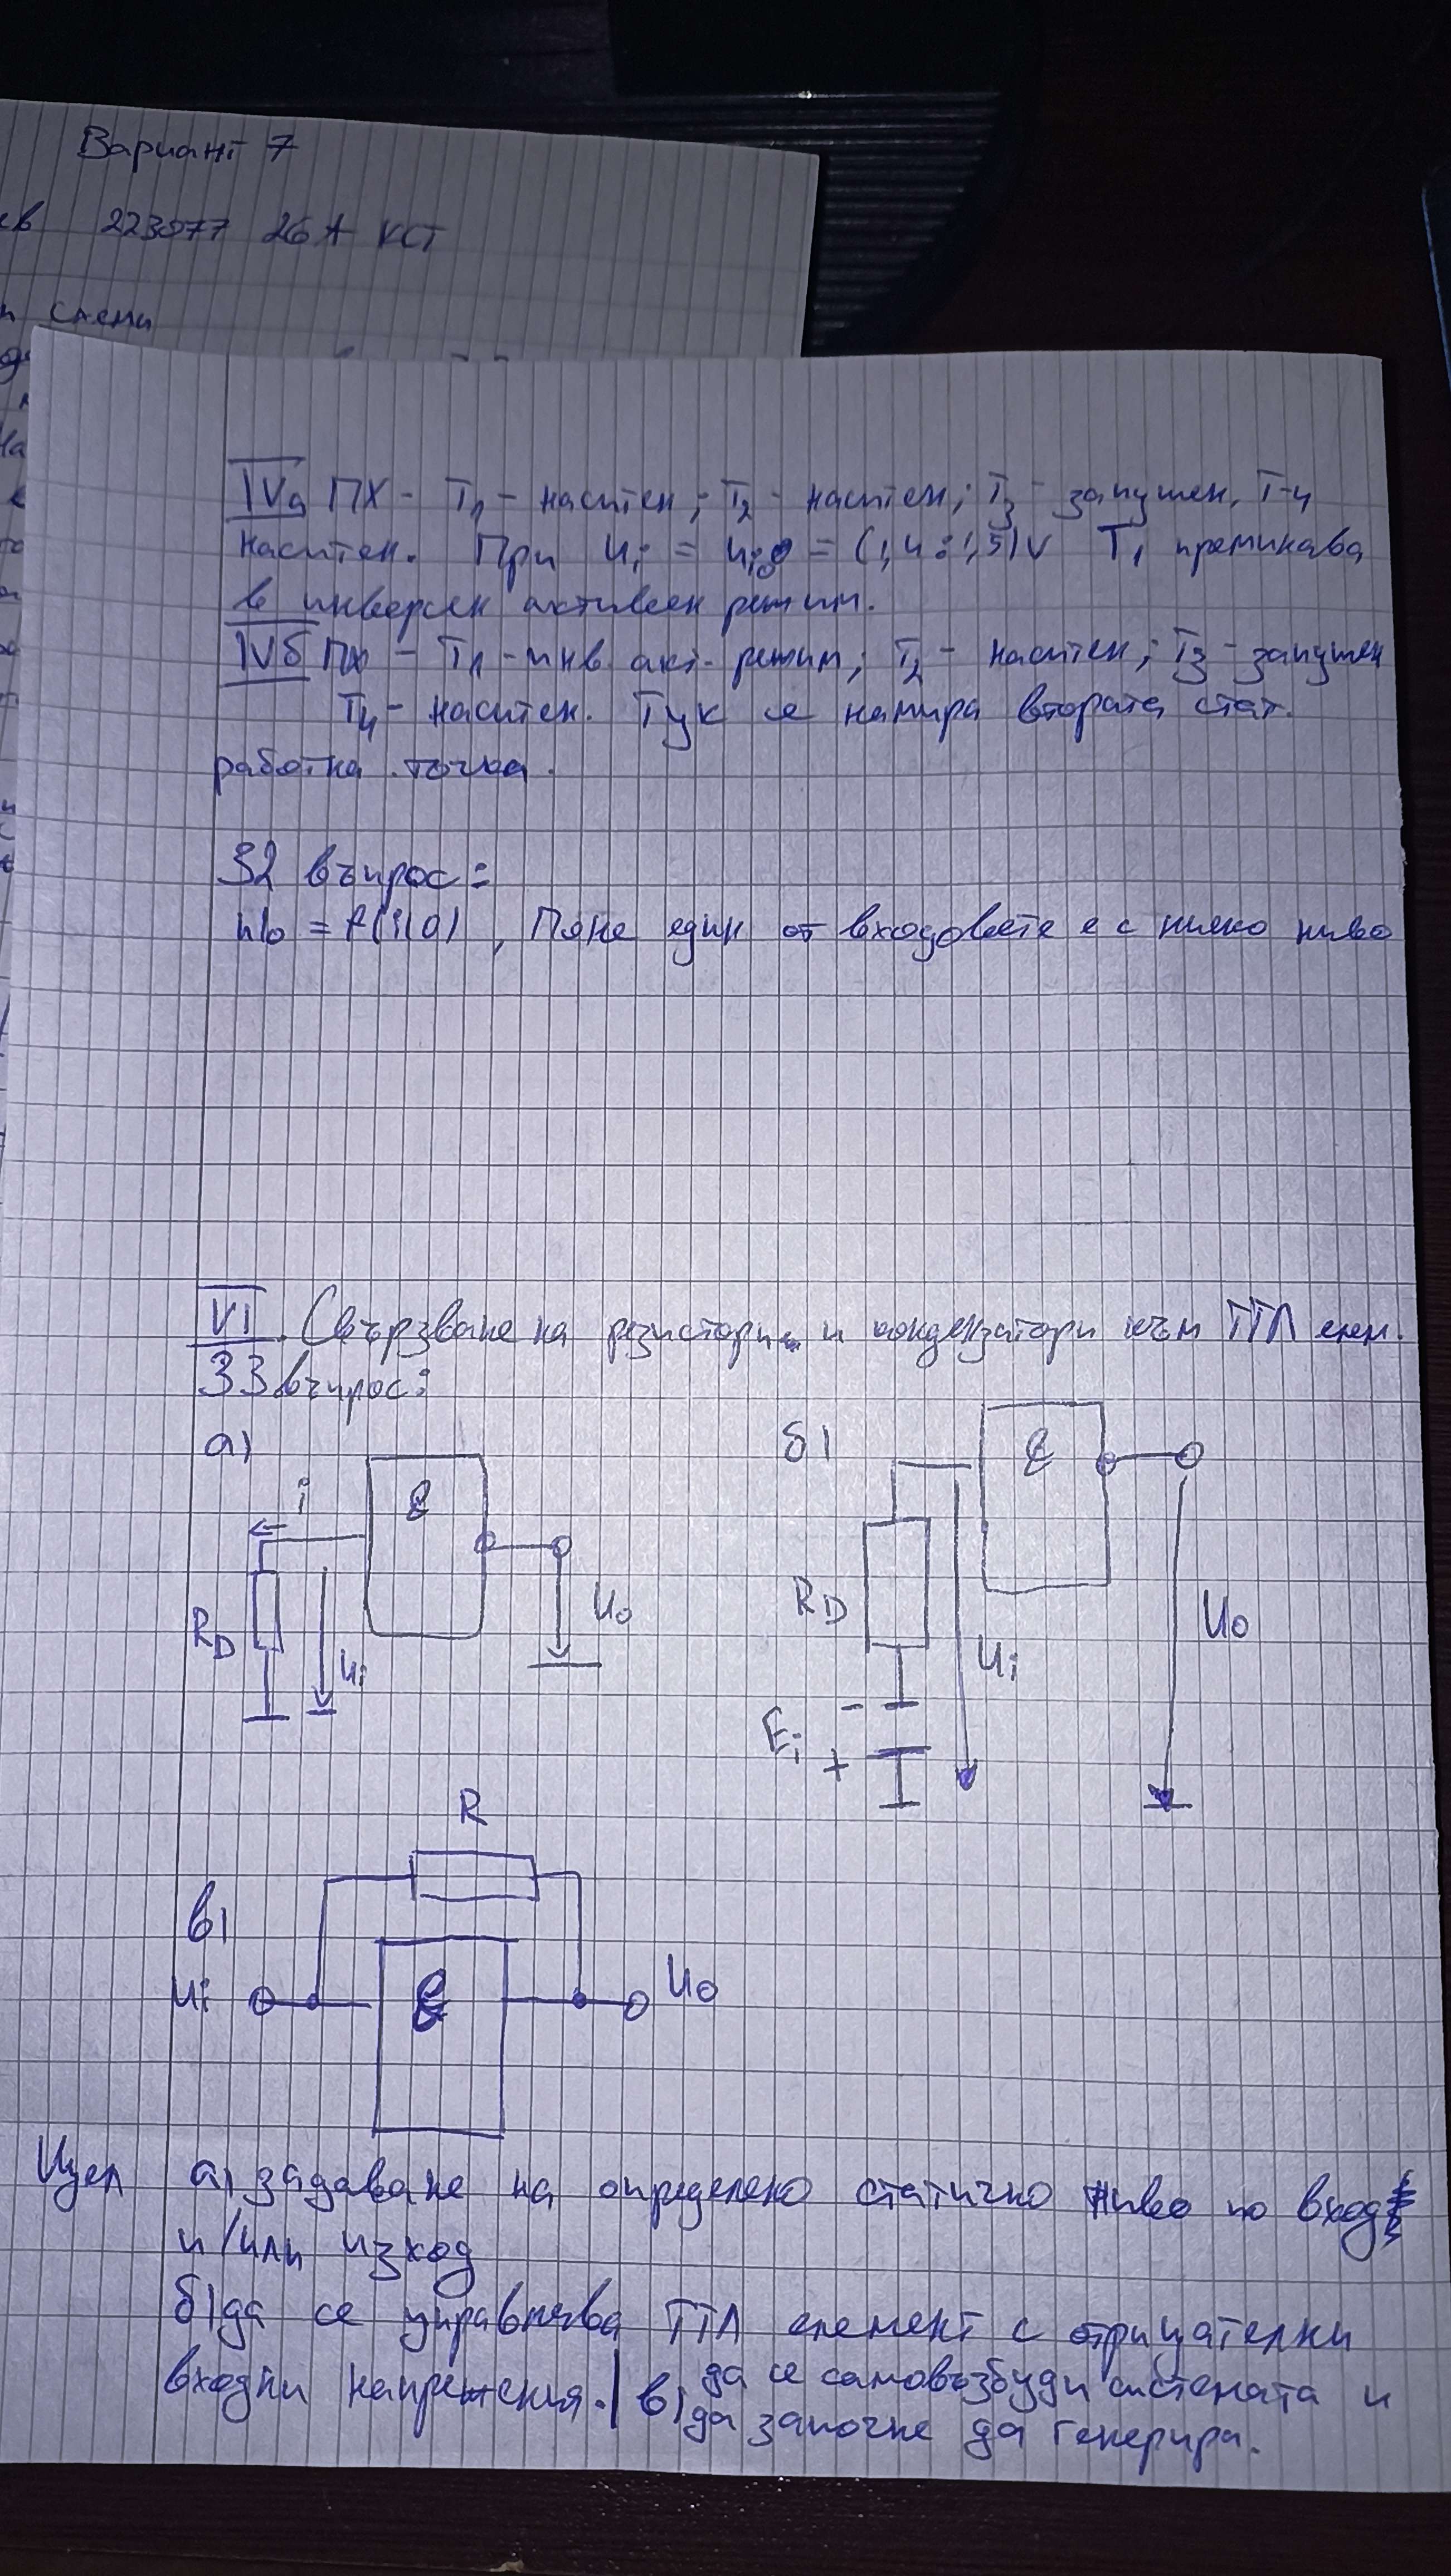 Вариант 7
ев 223077 26А КСТ
схеми
IVa ПХ - T1 - наситен; T2 - наситен; T3 - запушен, T-4
наситен. При Ui = Ui0 = (1,4÷1,5)V T1 преминава
в инверсен активен режим.
IVб ПХ - T1 - инв акт. режим; T2 - наситен; T3 - запушен
T4 - наситен. Тук се намира втората стат.
работна точка.
32 въпрос:
= f(i10), Поне един от входовете е с ниско ниво
VI. Свързване на резистори и кондензатори към ТТЛ елем.
33 въпрос:
а) б)
i & &
RD Ui U0 RD Ui U0
Ei - +
R
в)
Ui & U0
Цел а) задаване на определено статично ниво по вход
и/или изход
б) да се управлява ТТЛ елемент с отрицателни
входни напрежения. | в) да се самовъзбуди системата и
да започне да генерира.